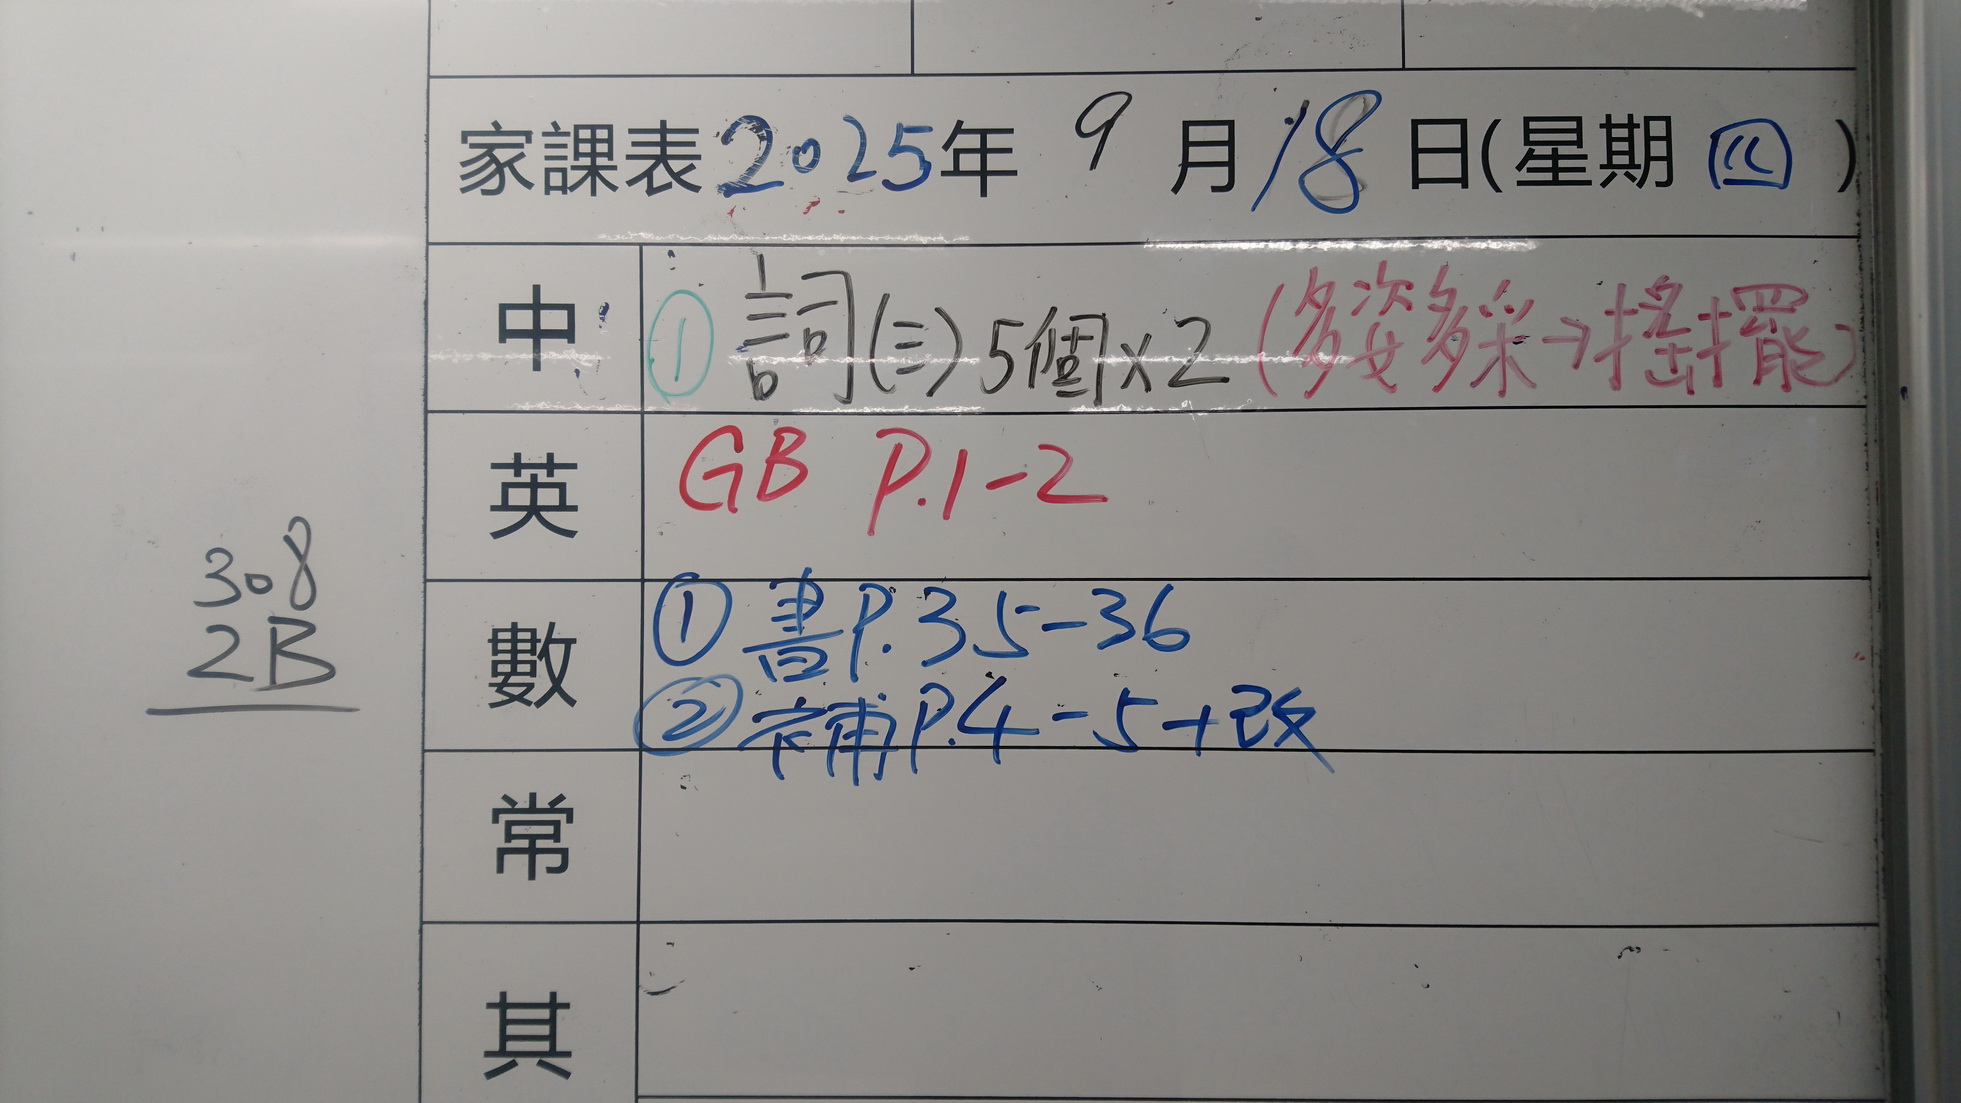 家課表2025年 9月18日(星期四)
中 ① 詞(三)5個x2(多姿多采→搖擺)
英 GB P.1-2
308
2B
數 ① 書P.35-36
② 補P.4-5+改
常
其